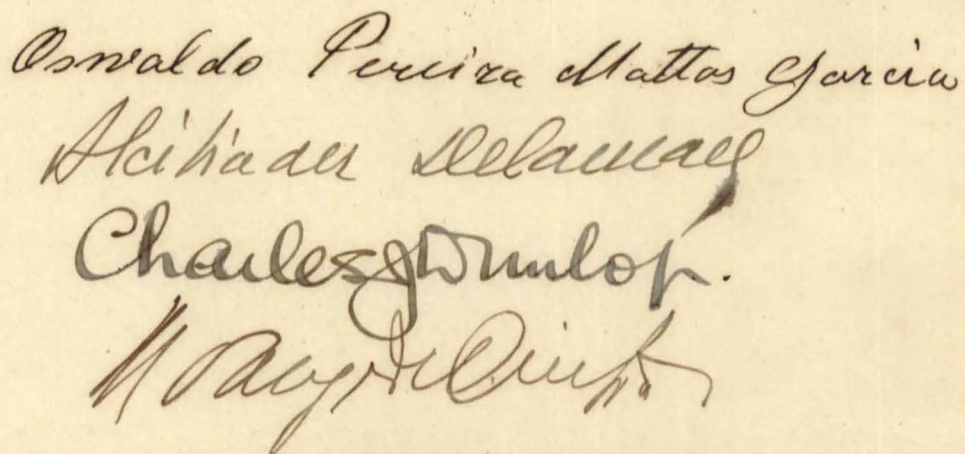 Oswaldo Pereira Mattos Garcia
Alcibiades Delamare
Charles J Dunlop.